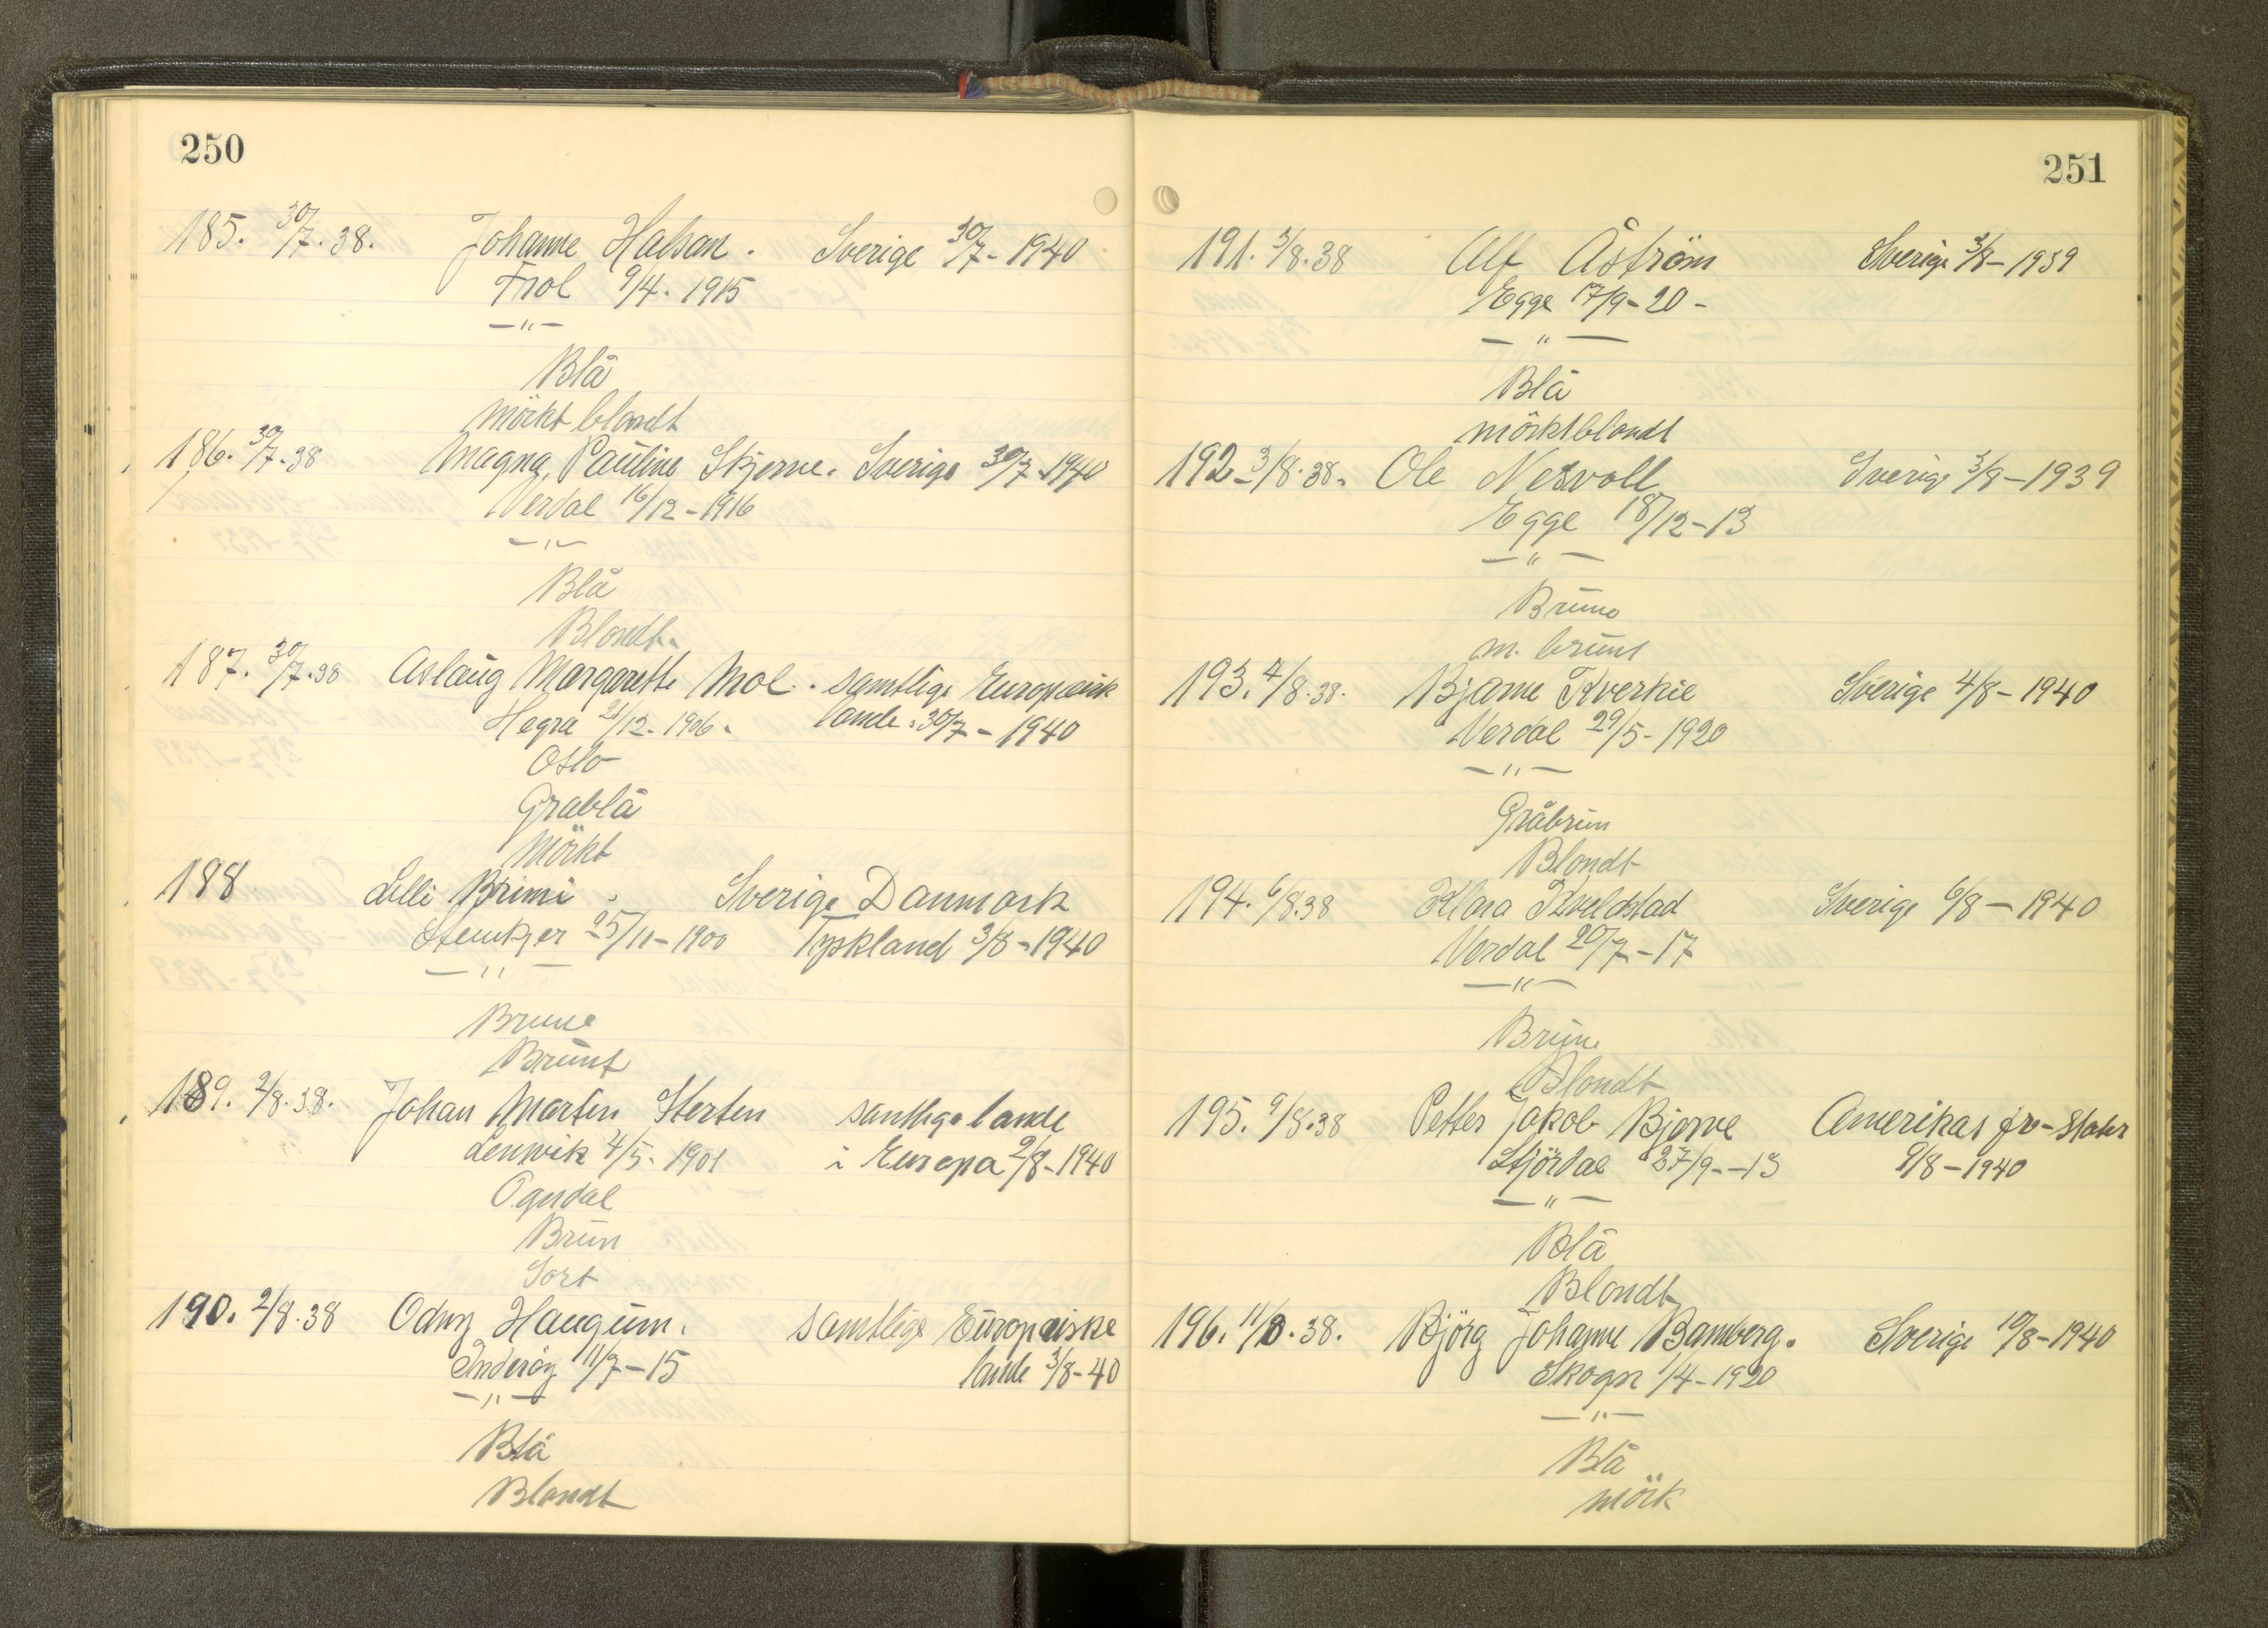 250
185. 30/7. 38. Johanne Halsan. Sverige 30/7- 1940
Frol 9/4. 1915
— " —
Blå
mörkt blondt
186. 30/7-38 Magna, Pauline Skjerve. Sverige 30/7-1940
Verdal 16/12-1916
— " —
Blå
Blondt.
187. 30/7.38 Aslaug Margarette Moe. samtlige Europeisk
Hegra 21/12-1906. lande. 30/7-1940
Oslo
Gråblå
Mörkt
188 Lilli Brimi. Sverige Danmark
Steinkjer 25/11-1900 Tyskland 3/8-1940
— " —
Brune
Brunt
189. 2/8.38. Johan Martin Sterten samtlige lande
Lenvik 4/5-1901 i Europa 2/8-1940
Ogndal
Brun
Sort
190. 2/8.38 Odny Haugum. samtlige Europeiske
Inderøy 11/7-15 lande 3/8-40
— " —
Blå
Blondt
251
191. 3/8.38 Alf Åström Sverige 3/8-1939
Egge 17/9-20-
— " —
Blå
mörktblondt
192-3/8.38. Ole Nesvoll Sverige 3/8-1939
Egge 18/12-13
— " —
Brune
m. brunt
193. 4/8.38. Bjarne Kverkil Sverige 4/8-1940
Verdal 29/5-1920
— " —
Gråbrun
Blondt
194. 6/8.38 Klara Kveldstad Sverige 6/8-1940
Verdal 20/7-17
— " —
Brune
Blondt
195. 9/8.38 Petter Jakob Bjerve Amerikas fr-Stater
Stjördal 27/9--13 9/8-1940
— " —
Blå
Blondt
196. 11/8.38. Bjørg Johanne Bamberg. Sverige 10/8-1940
Skogn 1/4-1920
— " —
Blå
mörk